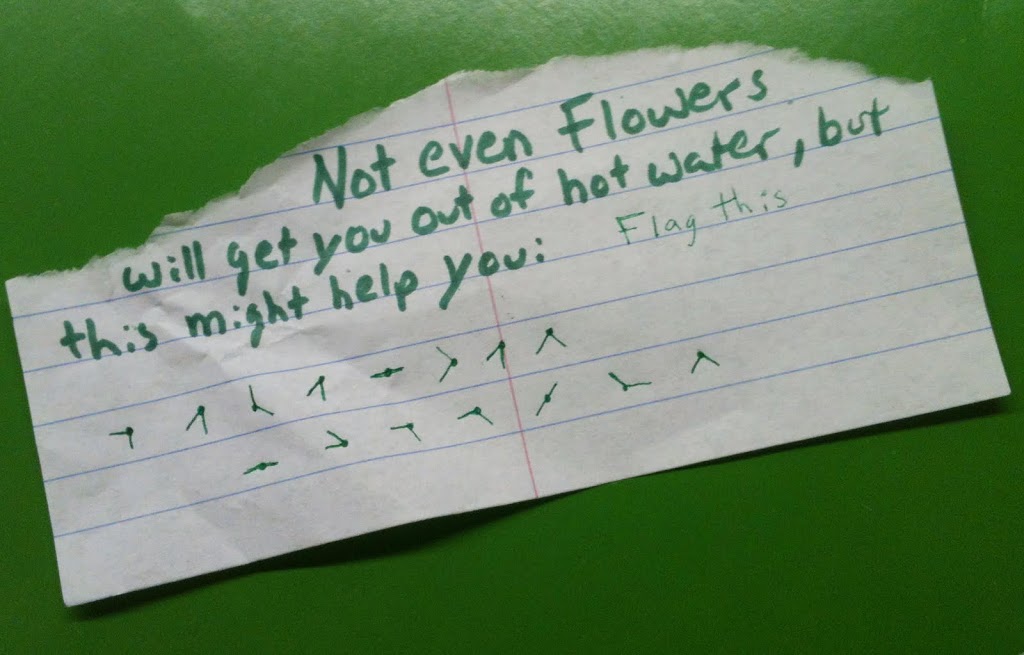 Not even Flowers
will get you out of hot water, but
this might help you:
Flag this